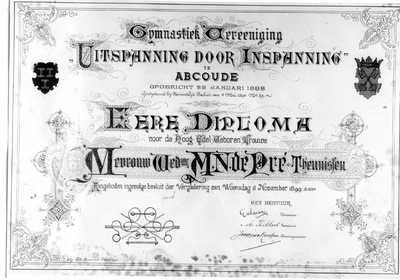 Gymnastiek Vereeniging
„UITSPANNING DOOR INSPANNING"
TE
ABCOUDE
OPGERICHT 28 JANUARI 1888
Goedgekeurd bij Koninklijk Besluit van
EERE DIPLOMA
voor de Hoog Edel Geboren Vrouwe
Mevrouw Wed: M.N. de Pré-Theunissen
Aangeboden ingevolge besluit der Vergadering van Woensdag 8 November 1899.
HET BESTUUR,